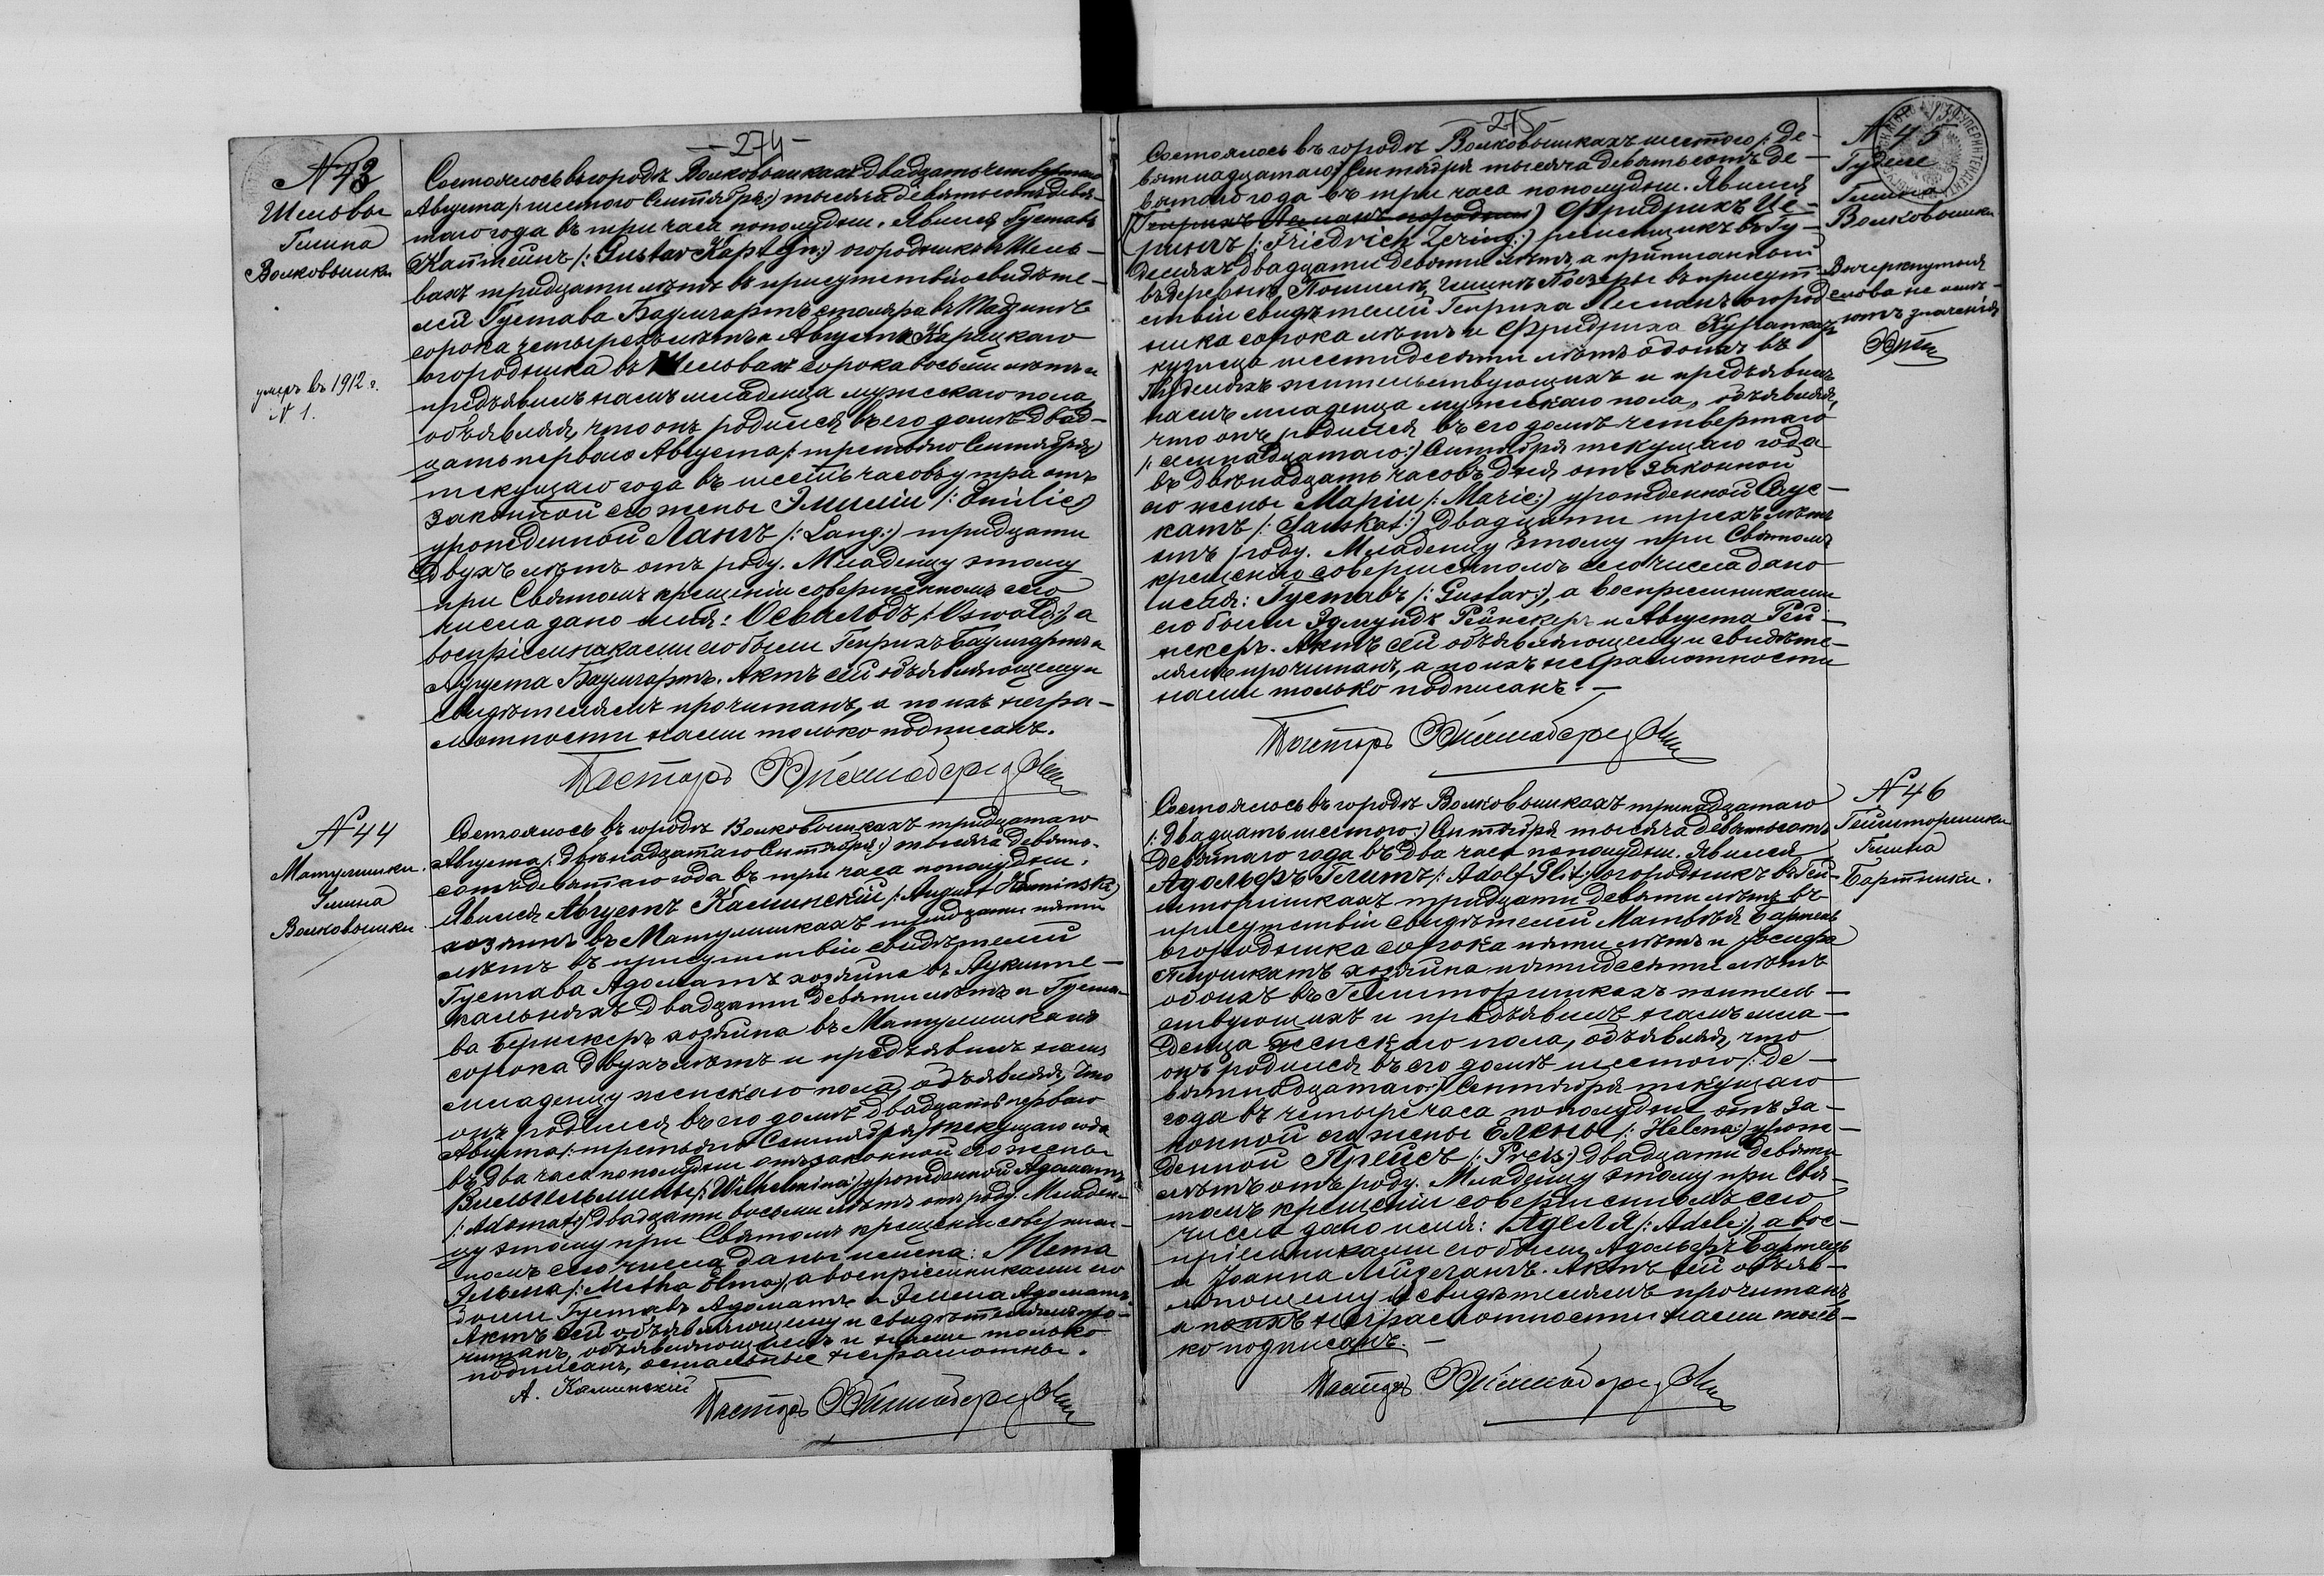 - 274 -
№ 43
Шельвы
Гмина
Волковышки
умеръ въ 1912 г.
№ 1.
Состоялось въ городѣ Волковышкахъ двадцать четвертаго
Августа /: шестого Сентября:/ тысяча девятьсотъ девя-
таго года въ три часа пополудни. Явился Густавъ
Каптейнъ /: Gustav Kaptejn:/ огородникъ въ Шель-
вахъ тридцати лѣтъ въ присутствіи свидѣте-
лей Густава Баумгартъ столяра въ
сорока четырехъ лѣтъ и Августа Карицкаго
огородника въ Шельвахъ сорока восьми лѣтъ и
предъявилъ намъ младенца мужескаго пола,
объявляя, что онъ родился въ его домѣ двад-
цать перваго Августа /: третьяго Сентября:/
текущаго года въ шесть часовъ утра отъ
законной его жены Эмиліи /: Emilie:/
урожденной Лангъ /: Lang:/ тридцати
двухъ лѣтъ отъ роду. Младенцу этому
при Святомъ крещеніи совершенномъ сего
числа дано имя: Освальдъ /: Oswald:/, а
воспріемниками его были Генрихъ Баумгартъ и
Августа Баумгартъ. Актъ сей объявляющему и
свидѣтелямъ прочитанъ, а по ихъ негра-
мотности нами только подписанъ.
Пасторъ
№ 44
Матулишки
Гмина
Волковышки
Состоялось въ городѣ Волковышкахъ тридцатаго
Августа /: двѣнадцатаго Сентября:/ тысяча девять-
сотъ девятаго года въ три часа пополудни.
Явился Августъ Каминскій /: August Kaminski:/
хозяинъ въ Матулишкахъ тридцати пяти
лѣтъ въ присутствіи свидѣтелей
Густава Адоматъ хозяина въ Аукште-
кальняхъ двадцати девяти лѣтъ и Густа-
ва Беринкеръ хозяина въ Матулишкахъ
сорока двухъ лѣтъ и предъявилъ намъ
младенцу женскаго пола, объявляя, что
онъ родился въ его домѣ двадцать перваго
Августа /: третьяго Сентября:/ текущаго года
въ два часа пополудни отъ законной его жены
Вильгельмины /: Wilhelmina:/ урожденной Адоматъ
/: Adomat:/ двадцати восьми лѣтъ отъ роду. Младен-
цу этому при Святомъ крещеніи совершен-
номъ сего числа даны имена: Мета
Эльма /: Metha Elma:/, а воспріемниками его
были Густавъ Адоматъ и Эмма Адоматъ.
Актъ сей объявляющему и свидѣтелямъ про-
читанъ, объявляющимъ и нами только
подписанъ, остальные неграмотны.
А. Каминскій
Пасторъ
- 275 -
№ 45
Гудели
Гмина
Волковышки
Вычеркнутыя
слова не имѣ-
ютъ значенія
Состоялось въ городѣ Волковышкахъ шестого /: де-
вятнадцатаго:/ Сентября тысяча девятьсотъ де-
вятаго года въ три часа пополудни. Явился
(Генрихъ Леманъ огородник) Фридрихъ Це-
рингъ /: Friedrich Zering:/ ремесщикъ въ Гу-
деляхъ двадцати девяти лѣтъ, а приписанный
въ деревнѣ гминѣ въ присут-
ствіи свидѣтелей Генриха Леманъ огород-
ника сорока лѣтъ и Фридриха
кузнеца шестидесяти лѣтъ обоихъ въ
Гуделяхъ жительствующихъ и предъявилъ
намъ младенца мужескаго пола, объявляя,
что онъ родился въ его домѣ четвертаго
/: семнадцатаго:/ Сентября текущаго года
въ двѣнадцать часовъ дня отъ законной
его жены Маріи /: Marie:/ урожденной Саус-
катъ /: Sauskat:/ двадцати трехъ лѣтъ
отъ роду. Младенцу этому при Святомъ
крещеніи совершенномъ сего числа дано
имя: Густавъ /: Gustav:/, а воспріемниками
его были Эдмундъ Рейнкеръ и Августа Рей-
нкеръ. Актъ сей объявляющему и свидѣте-
лямъ прочитанъ, а по ихъ неграмотности
нами только подписанъ. —
Пасторъ
№ 46
Гейшторишки
Гмина
Бартники.
Состоялось въ городѣ Волковышкахъ тринадцатаго
/: двадцать шестого:/ Сентября тысяча девятьсотъ
девятаго года въ два часа пополудни. Явился
Адольфъ Глитъ /: Adolf Glit:/ огородникъ въ Гей-
шторишкахъ тридцати девяти лѣтъ въ
присутствіи свидѣтелей Матвѣя Бартель
огородника сорока пяти лѣтъ и Іосифа
хозяина пятидесяти лѣтъ
обоихъ въ Гейшторишкахъ житель-
ствующихъ и предъявилъ намъ мла-
денца женскаго пола, объявляя, что
онъ родился въ его домѣ шестого /: де-
вятнадцатаго:/ Сентября текущаго
года въ четыре часа пополудни отъ за-
конной его жены Елены /: Helena:/ урож-
денной Прейсъ /: Preis:/ двадцати девяти
лѣтъ отъ роду. Младенцу этому при Свя-
томъ крещеніи совершенномъ сего
числа дано имя: Аделя /: Adele:/, а вос-
пріемниками его были Адольфъ Бартель
и Іоанна Лейдегангъ. Актъ сей объяв-
ляющему и свидѣтелямъ прочитанъ,
а по ихъ неграмотности нами толь-
ко подписанъ. —
Пасторъ